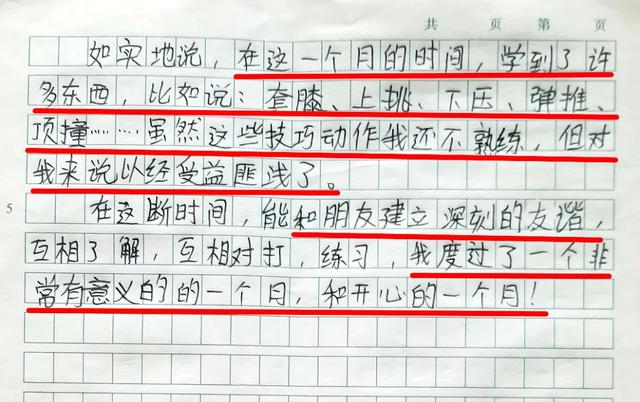 共 页 第 页
如实地说，在这一个月的时间，学到了许
多东西，比如说：套膝、上挑、下压、弹推、
顶撞……虽然这些技巧动作我还不熟练，但对
我来说以经受益匪浅了。
5 在这断时间，能和朋友建立深刻的友谐，
互相了解，互相对打，练习，我度过了一个非
常有意义的的一个月，和开心的一个月！